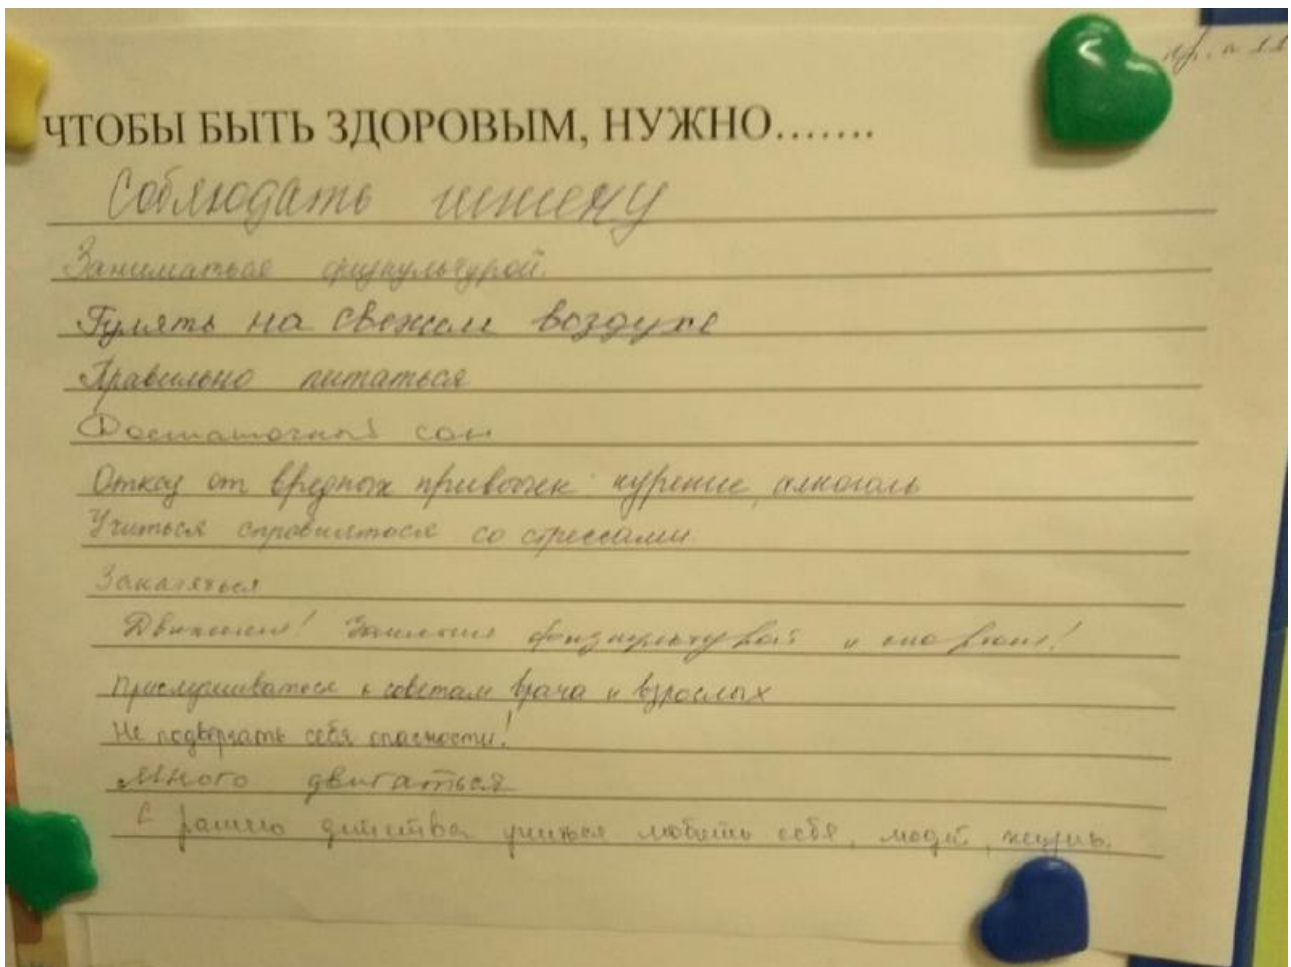 гр. n 11
ЧТОБЫ БЫТЬ ЗДОРОВЫМ, НУЖНО.......
Соблюдать гигиену
Заниматься физкультурой.
Гулять на свежем воздухе
Правильно питаться
Достаточный сон
Отказ от вредных привычек: курение, алкоголь
Учиться справляться со стрессами
Закаляться
Движение! Занятия физкультурой и !
Прислушиваться к советам врача и взрослых
Не подвергать себя опасности!
Много двигаться
С раннего детства учиться любить себя, людей, жизнь.